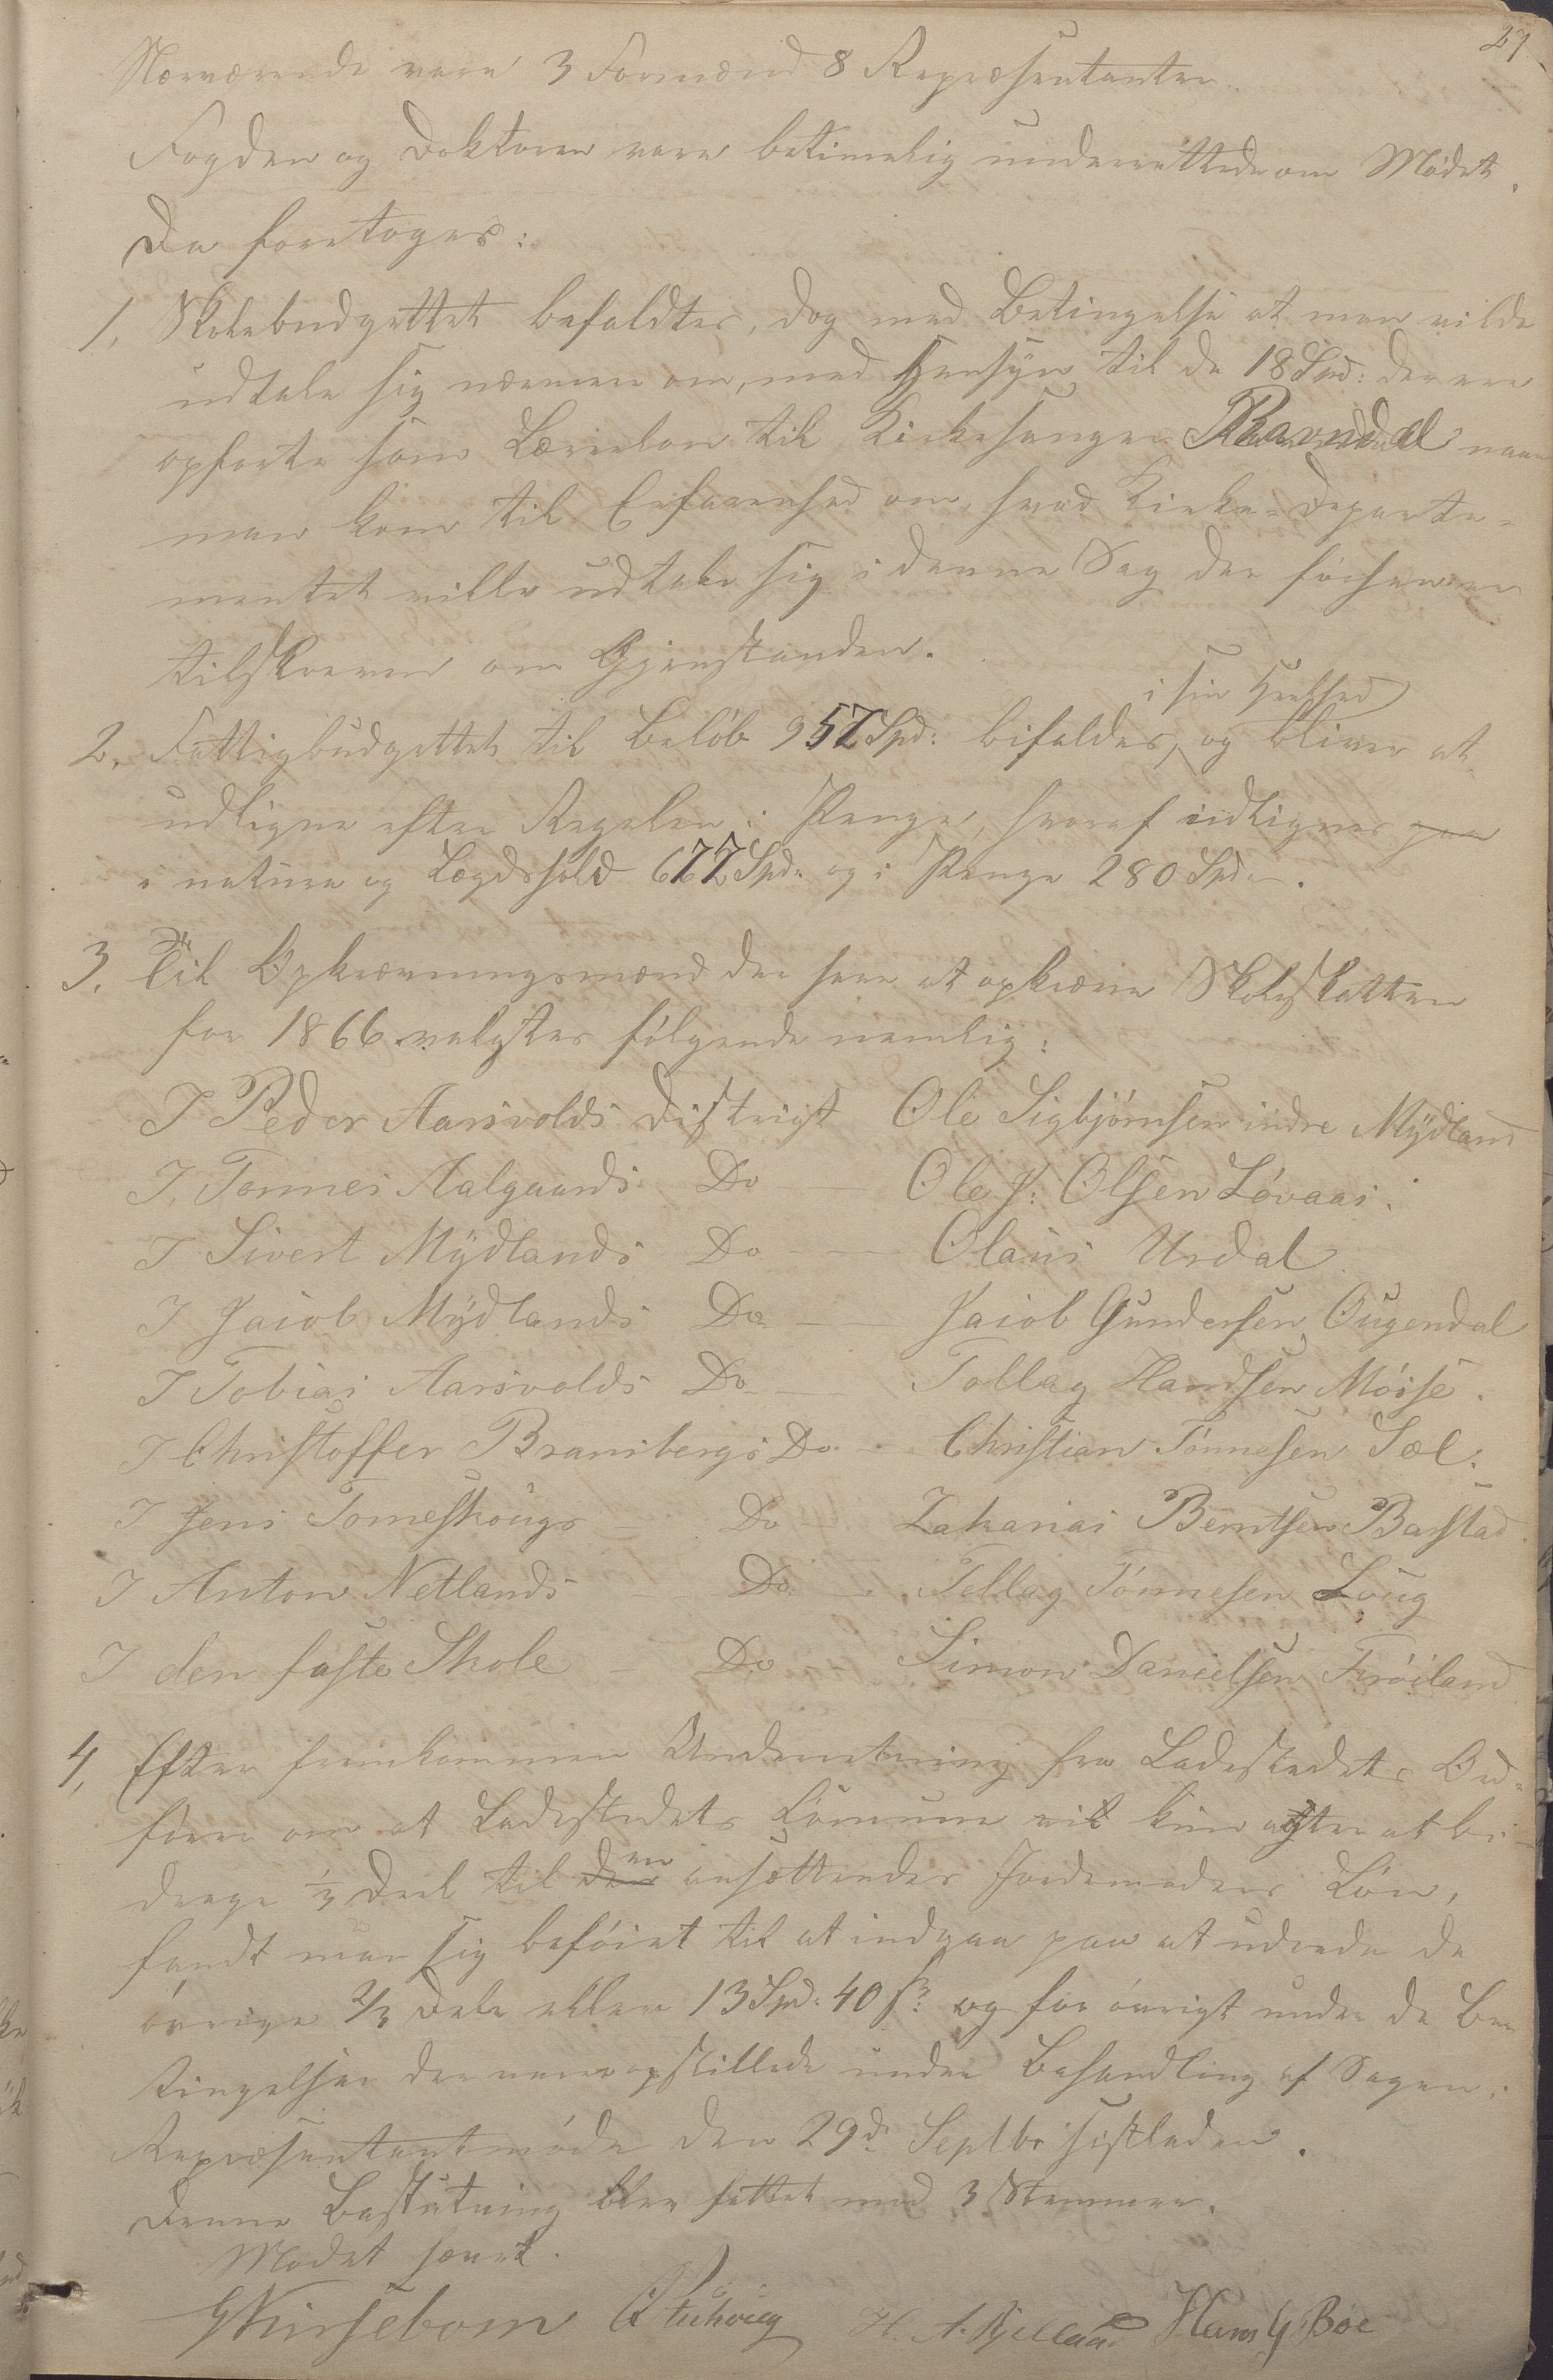 27
Nærværende vare 3 Formænd 8 Repræsentanter.
Fogden og Doktoren vare betimelig underrettede om Mødet.
Da foretoges:
1, Skolebudgettet befaldtes, dog med Betingelse at man vilde
udtale sig nærmere om, med Hensyn til de 18 Spd: der ere
opførte som Lærerløn til Kirkesanger Ravndal naar
man kom til Erfarenhed om, hvad Kirke-Departe-
mentet ville udtale sig i denne Sag der forhen er
tilskreven om Gjenstanden.
i sin Heelhed
2, Fattigbudgettet til Beløb 957 Spd: bifaldes, og bliver at
udligne efter Regelen i Penge, hvoraf udlignes paa
i natura og Lægdshold 677 Spd. og i Penge 280 Spd.
3, Til Opkrævningsmænd der have at opkræve Skoleskatten
for 1866 valgtes følgende nemlig:
I Peder Aarsvolds Distrigt Ole Sigbjørnsen indre Mÿdland
I. Tonnes Aalgaards Do — Ole J: Olsen Løvaas.
I Sivert Mÿdlands Do — Olaus Urdal
I Jacob Mÿdlands Do — Jacob Gundersen Ougendal
I Tobias Aarsvolds Do — Tollag Handsen Moise.
I Christoffer Bransbergs Do — Christian Tønnesen Sæl.
I Jens Tomeskougs — Do — Zakarias Berntsen Barstad.
I Anton Netlands — Do — Tellag Tønnesen Loug
I den faste Skole — Do — Simon Danielsen Frøiland
4, Efter fremkommen Underretning fra Ladestedets Ord-
fører om at Ladestedets Comune vil kun agter at bi-
drage 1/3 Deel til den en ansættendes Jordemoders Løn,
fandt man sig beføiet til at indgaa paa at udrede de
øvrige 2/3 Dele eller 13 Spd: 40 s: og for øvrigt under de Be-
tingelser der vare opstillede under Behandling af Sagen i
Repræsentantmøde den 29de Septbr sistleden.
Denne Beslutning blev fattet med 3 Stemmer.
Mødet hævet.
Hans G Bøe